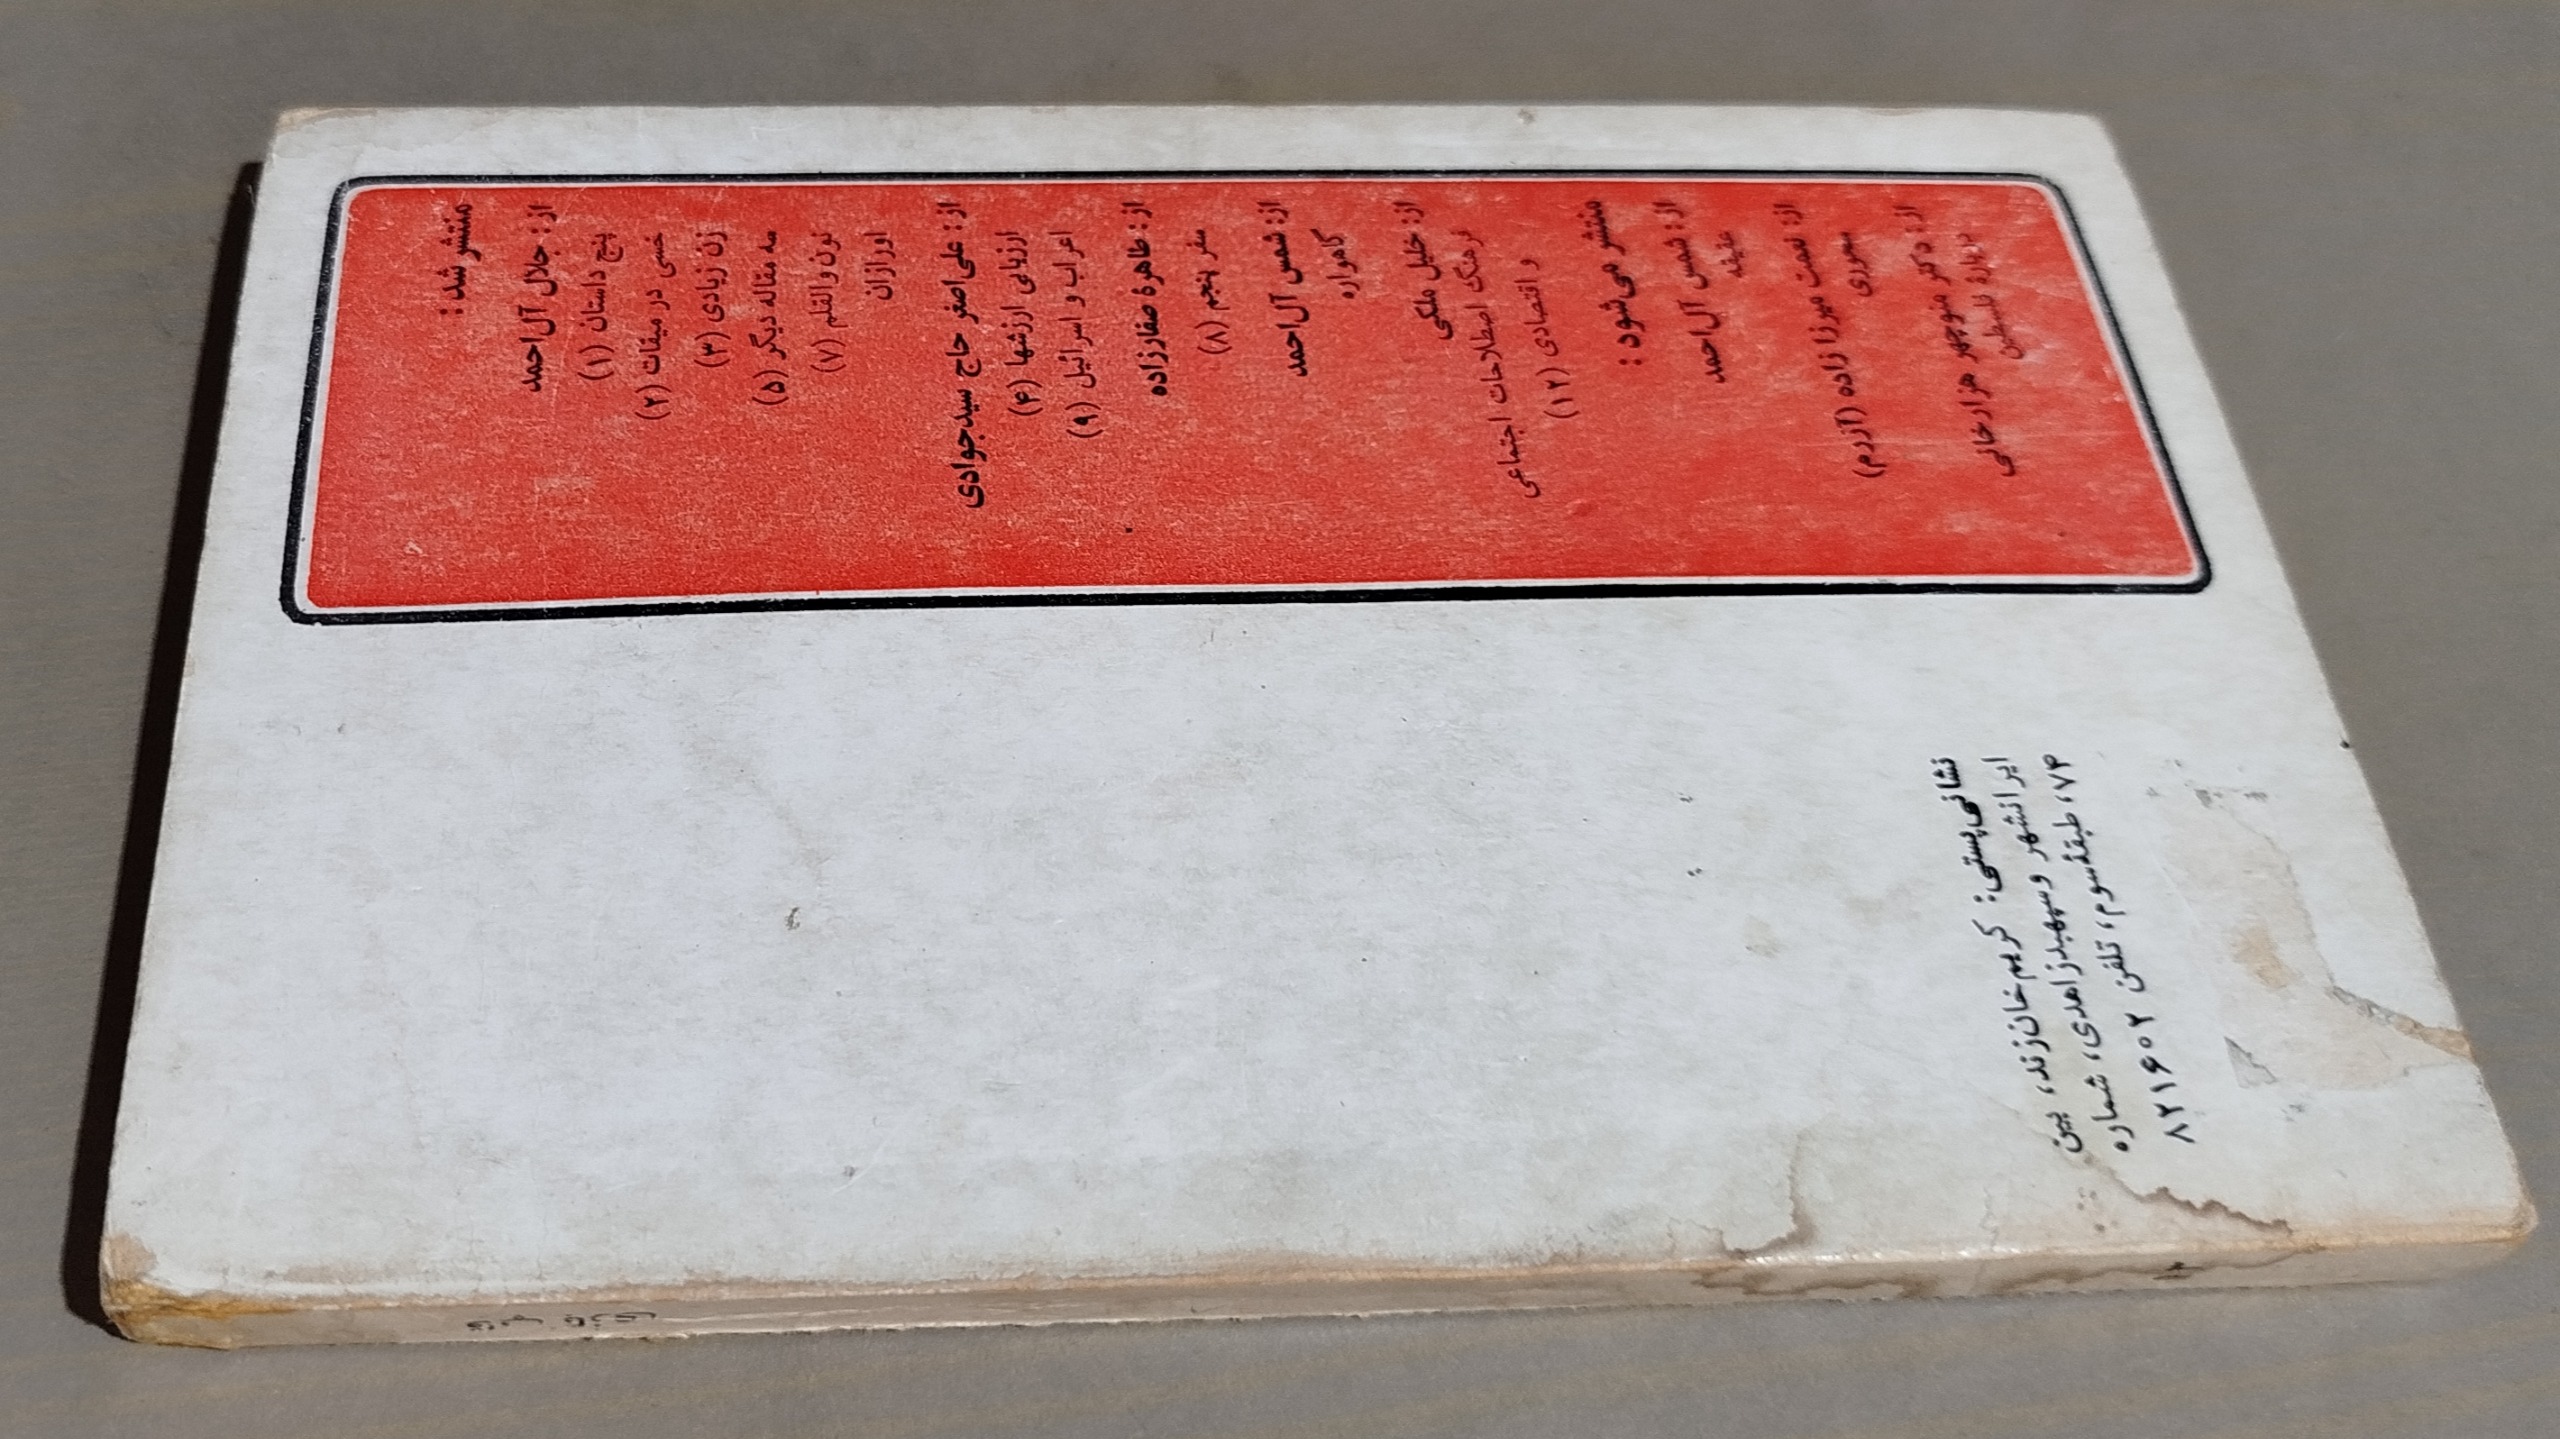 منتشر شد:
از: جلال آل‌احمد
پنج داستان (۱)
خسی در میقات (۲)
زن زیادی (۳)
سه مقاله دیگر (۵)
نون والقلم (۷)
اورازان
از: علی‌اصغر حاج سیدجوادی
ارزیابی ارزشها (۴)
اعراب و اسرائیل (۹)
از: طاهرهٔ صفارزاده
سفر پنجم (۸)
از: شمس آل‌احمد
گاهواره
از: خلیل ملکی
فرهنگ اصطلاحات اجتماعی
و اقتصادی (۱۲)
منتشر می‌شود:
از: شمس آل‌احمد
عقیقه
از: نعمت میرزا زاده (آزرم)
سحوری
از: دکتر منوچهر هزارخانی
دربارهٔ فلسطین
نشانی‌پستی: کریم‌خان‌زند، بین
ایرانشهر و سپهبدزاهدی، شماره
۷۴، طبقهٔ‌سوم، تلفن ۸۲۱۶۰۲